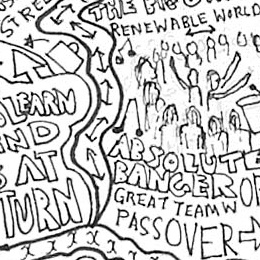 THE
RENEWABLE WORLD
LEARN
AND
AT
TURN
ABSOLUTE
BANGER OF
GREAT TEAMW
PASSOVER